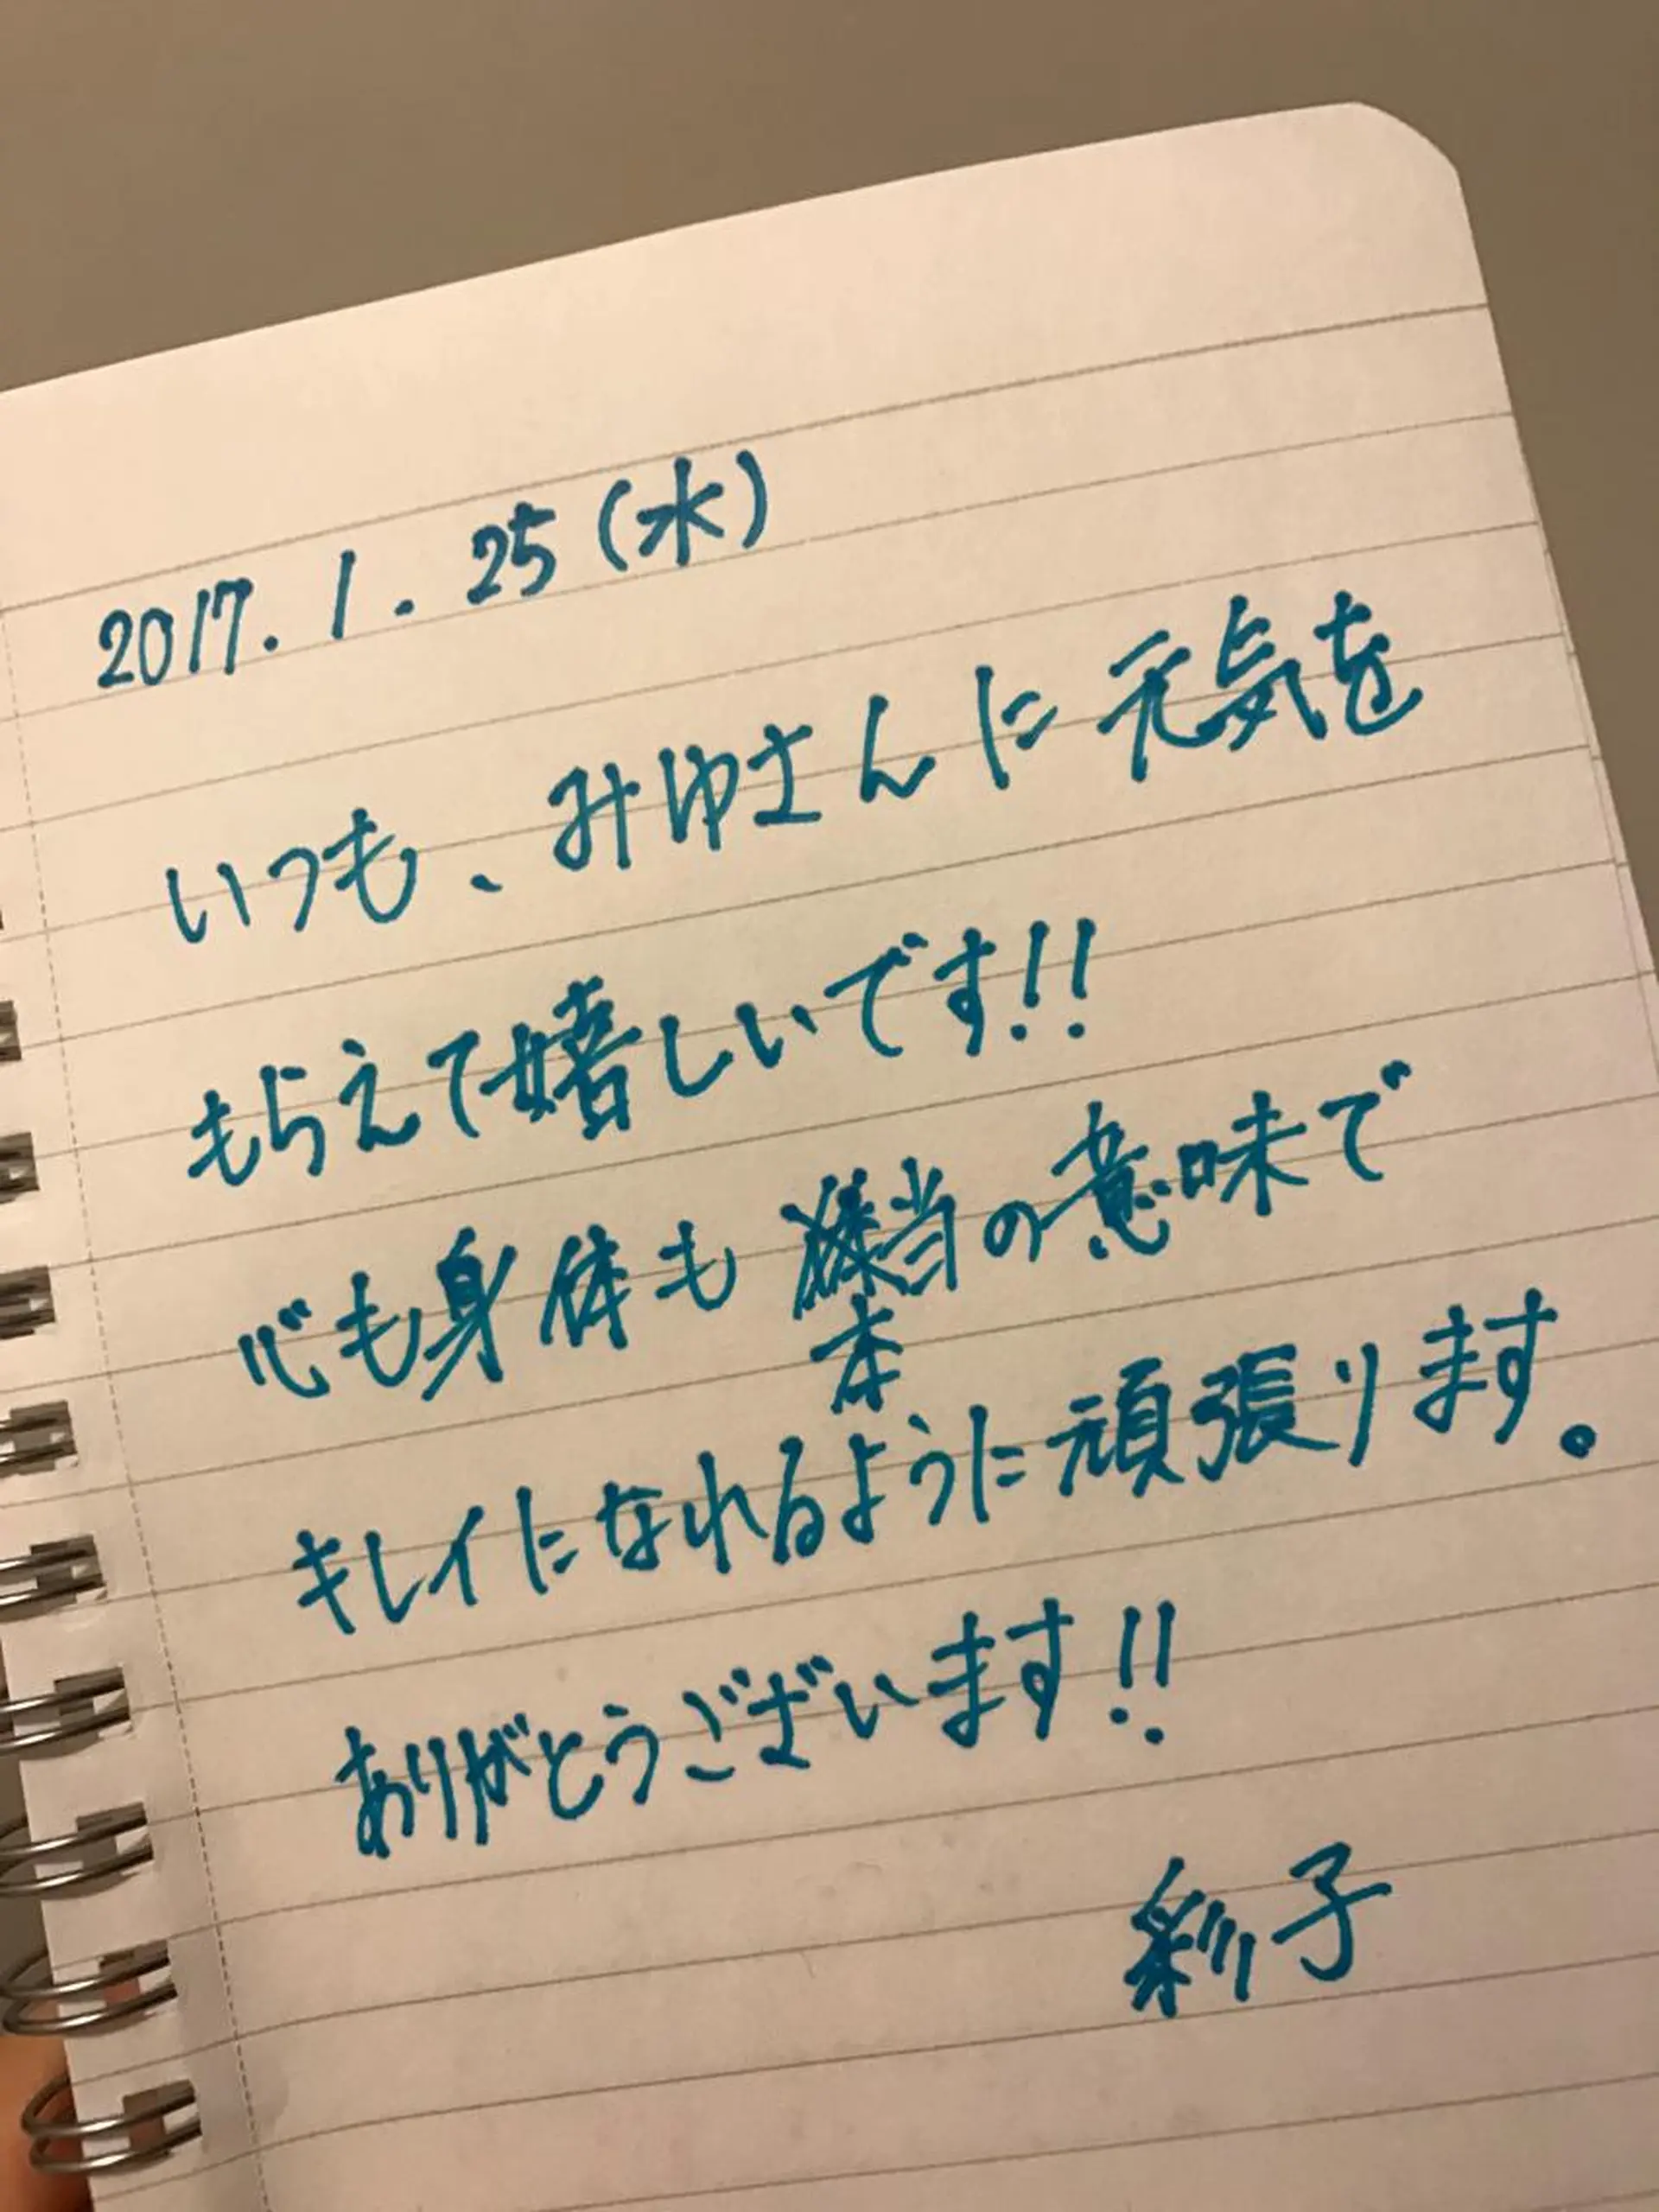 2017.1.25(水)
いつも、みゆさんに元気を
もらえて嬉しいです!!
心も身体も本当の意味で
キレイになれるように頑張ります。
ありがとうございます!!
彩子